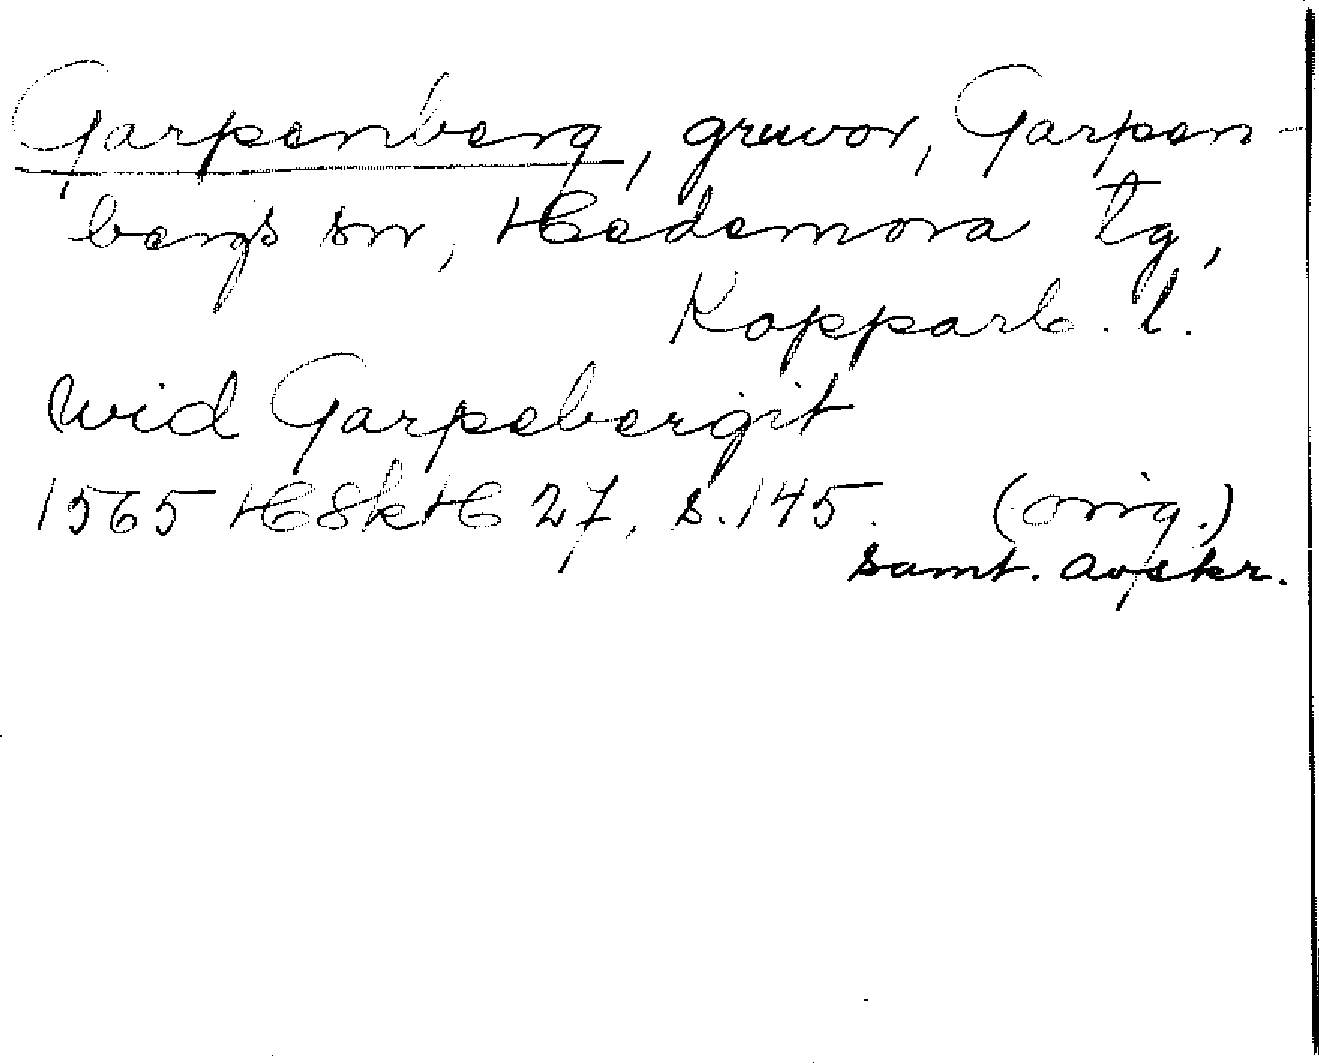 Garpenberg, gruvor, Garpen-
bergs sn, Hedemora tg,
Kopparb. l.
wid Garpebergit
1565 HSkH 27, s. 145. (orig.)
samt. avskr.